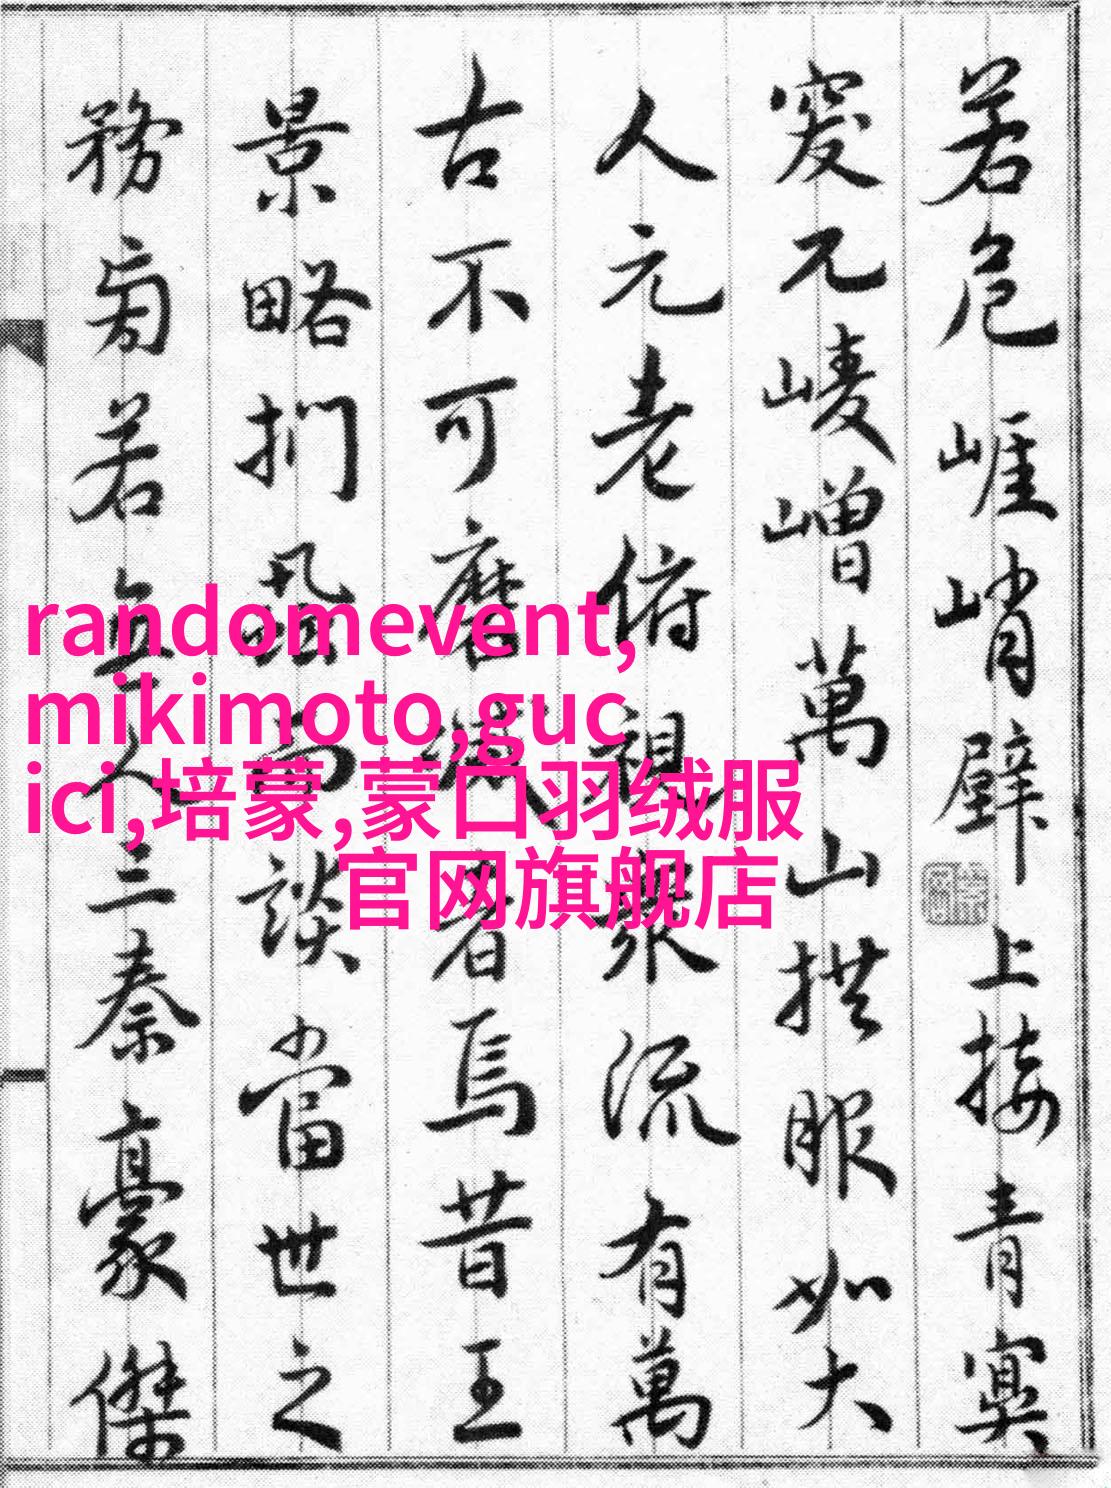 若危崕峭壁上接青冥
突兀崚嶒萬山拱服如大
人元老俯視衆流有萬
古不可磨滅者焉昔王
景略捫虱高談當世之
務旁若無人三秦豪傑
randomevent,
mikimoto,guc
ici,培蒙,蒙口羽绒服
官网旗舰店